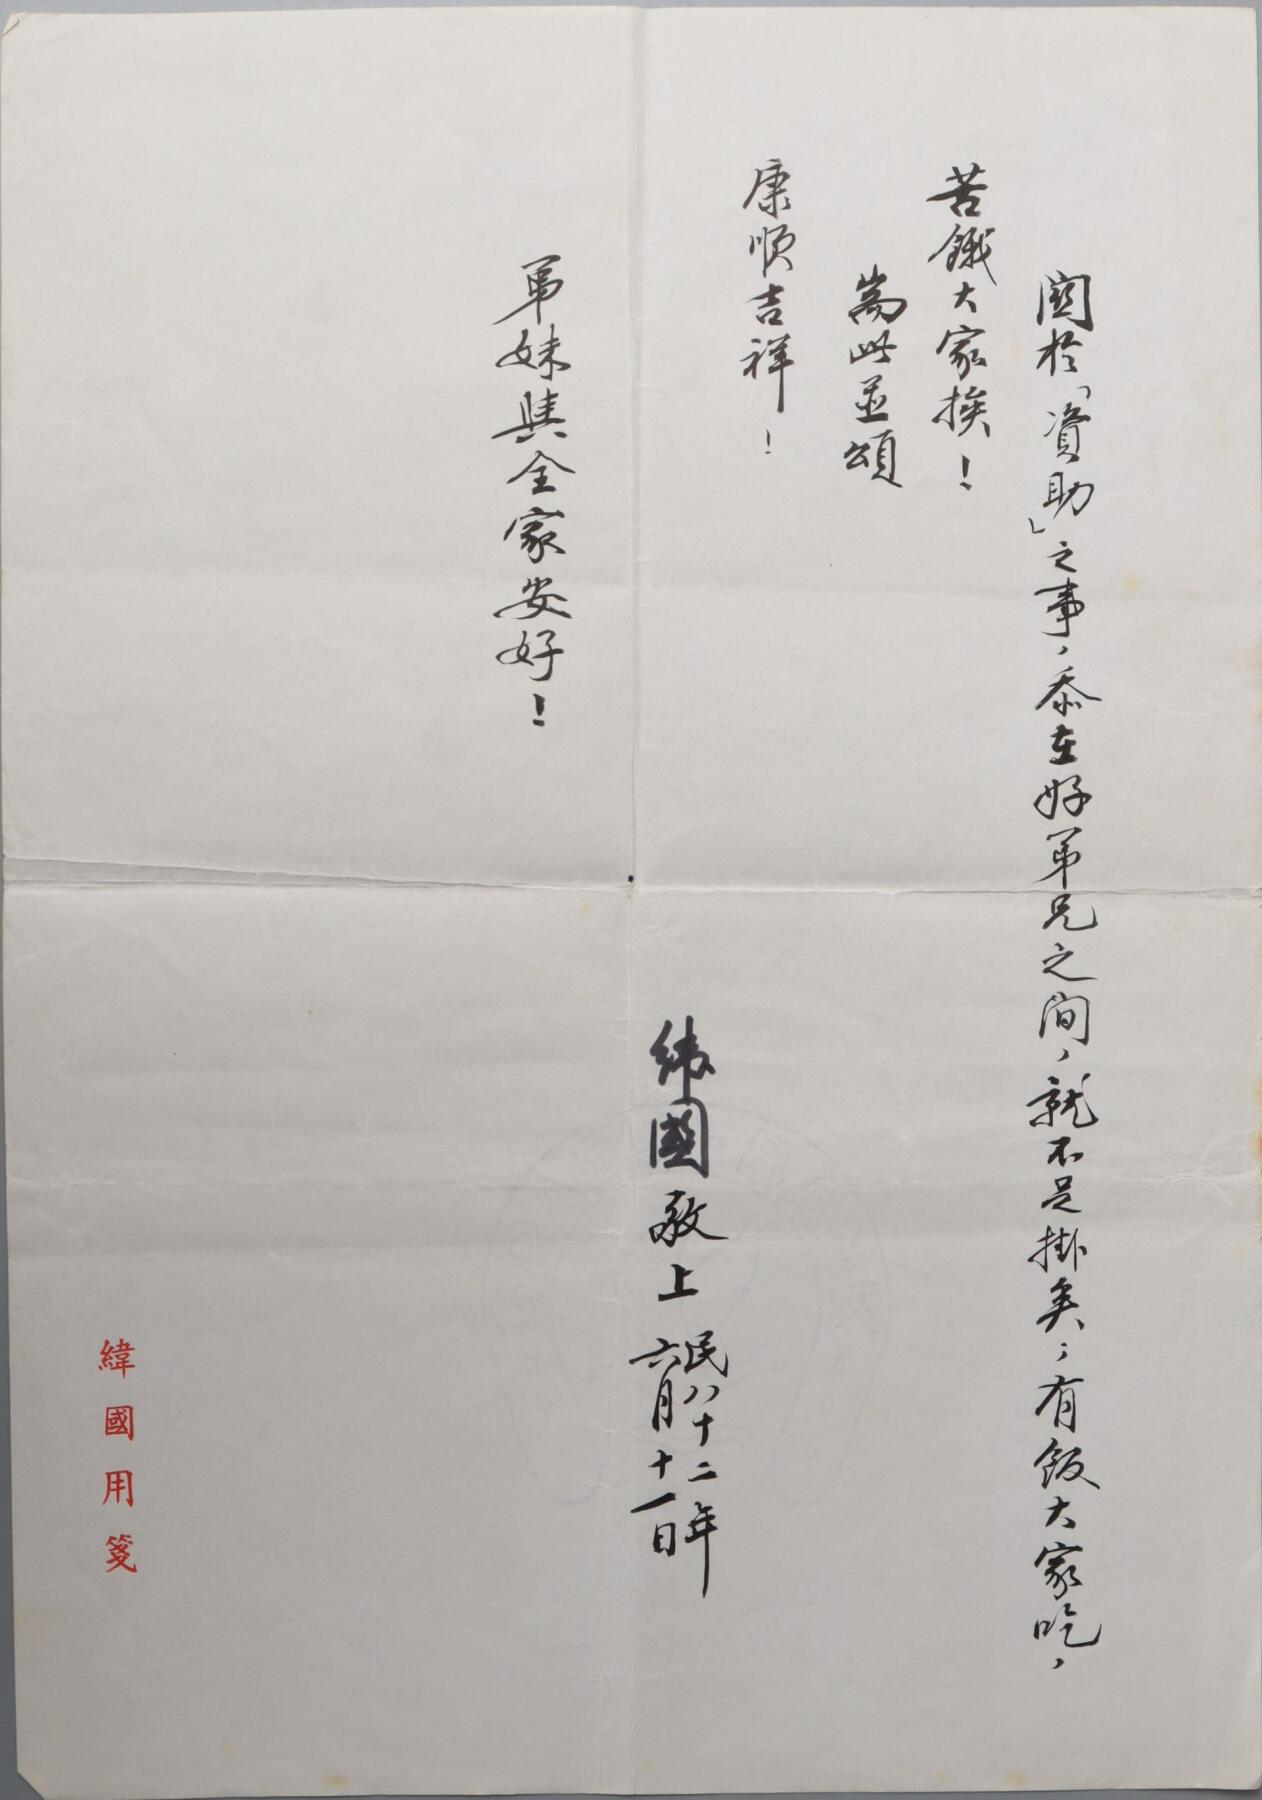 關於「資助」之事，忝在好弟兄之间，就不足掛矣；有飯大家吃，
苦餓大家挨！
耑此並頌
康順吉祥！
緯國敬上
民八十二年
六月十一日
弟妹與全家安好！
緯國用箋